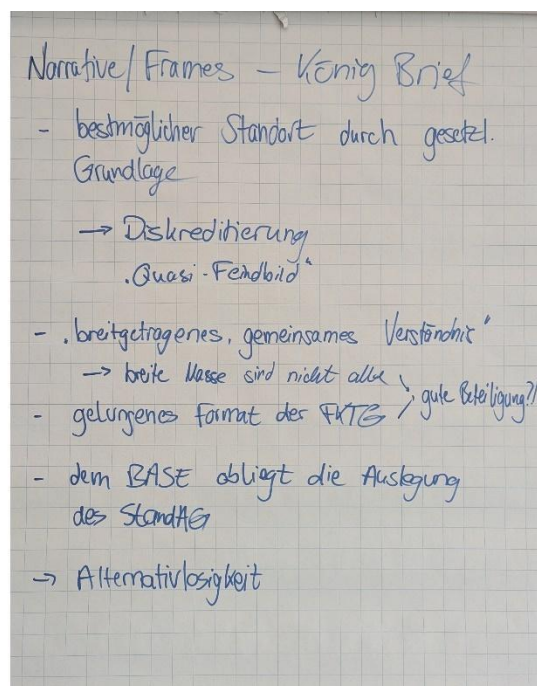 Narrative/Frames – König Brief
- bestmöglicher Standort durch gesetzl.
Grundlage
→ Diskreditierung
„Quasi-Feindbild“
- „breitgetragenes, gemeinsames Verständnis“
→ breite Masse sind nicht alle
gute Beteiligung?!
- gelungenes Format der FKTG
- dem BASE obliegt die Auslegung
des StandAG
→ Alternativlosigkeit